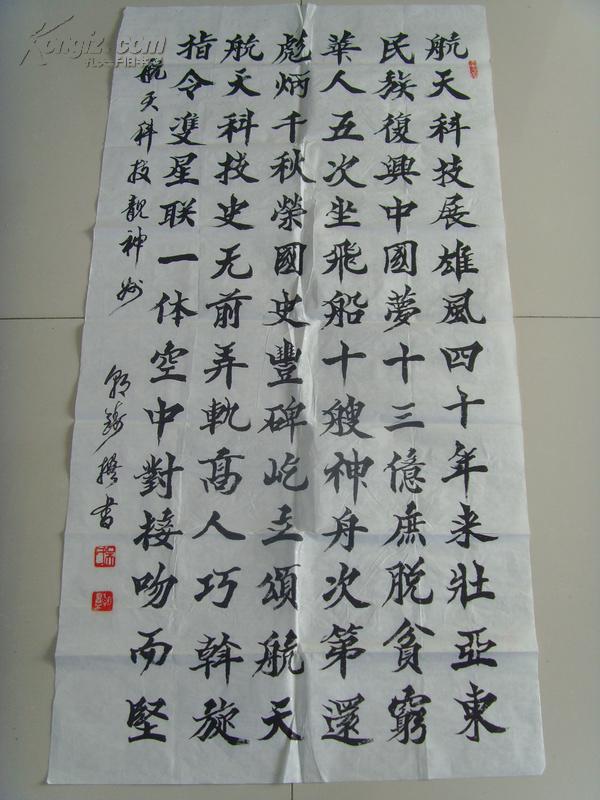 航天科技展雄風四十年来壯亞東
民族復興中國夢十三億庶脱貧窮
華人五次坐飛船十艘神舟次第還
彪炳千秋榮國史豐碑屹立頌航天
航天科技史无前弄軌高人巧斡旋
指令雙星联一体空中對接吻而堅
航天科技靓神州
書
Kongfz.com
孔夫子旧书网